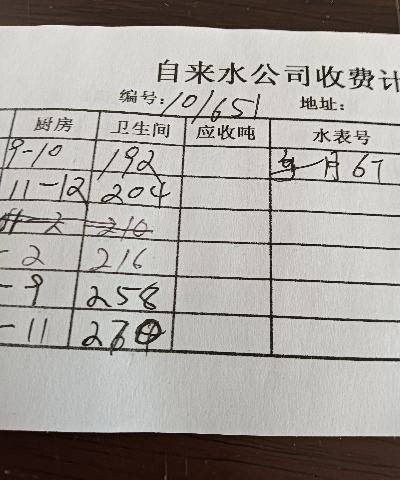 自来水公司收费计
编号: 101651 地址:
厨房 卫生间 应收吨 水表号
9-10 192 每一月6T
11-12 204
210
-2 216
-9 258
-11